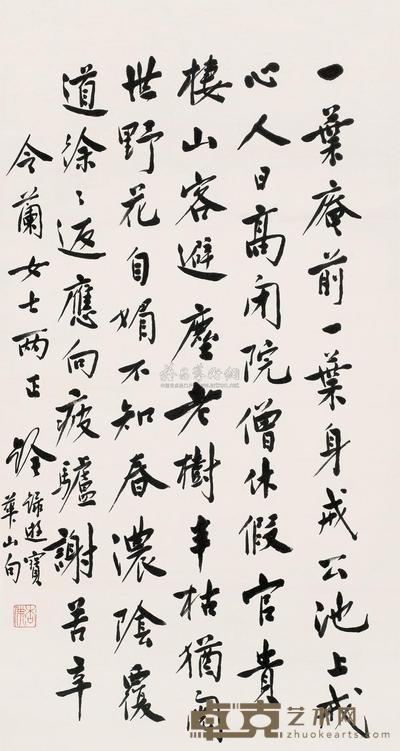 一葉庵前一葉身戒公池上戒
心人日高閉院僧休假官貴
棲山客避塵老樹半枯猶
世野花自媚不知春濃陰覆
道徐〻返應向疲驢謝苦辛
令蘭女士兩正 銓
歸遊寶
華山句
卓克艺术网
www.zhuokearts.com